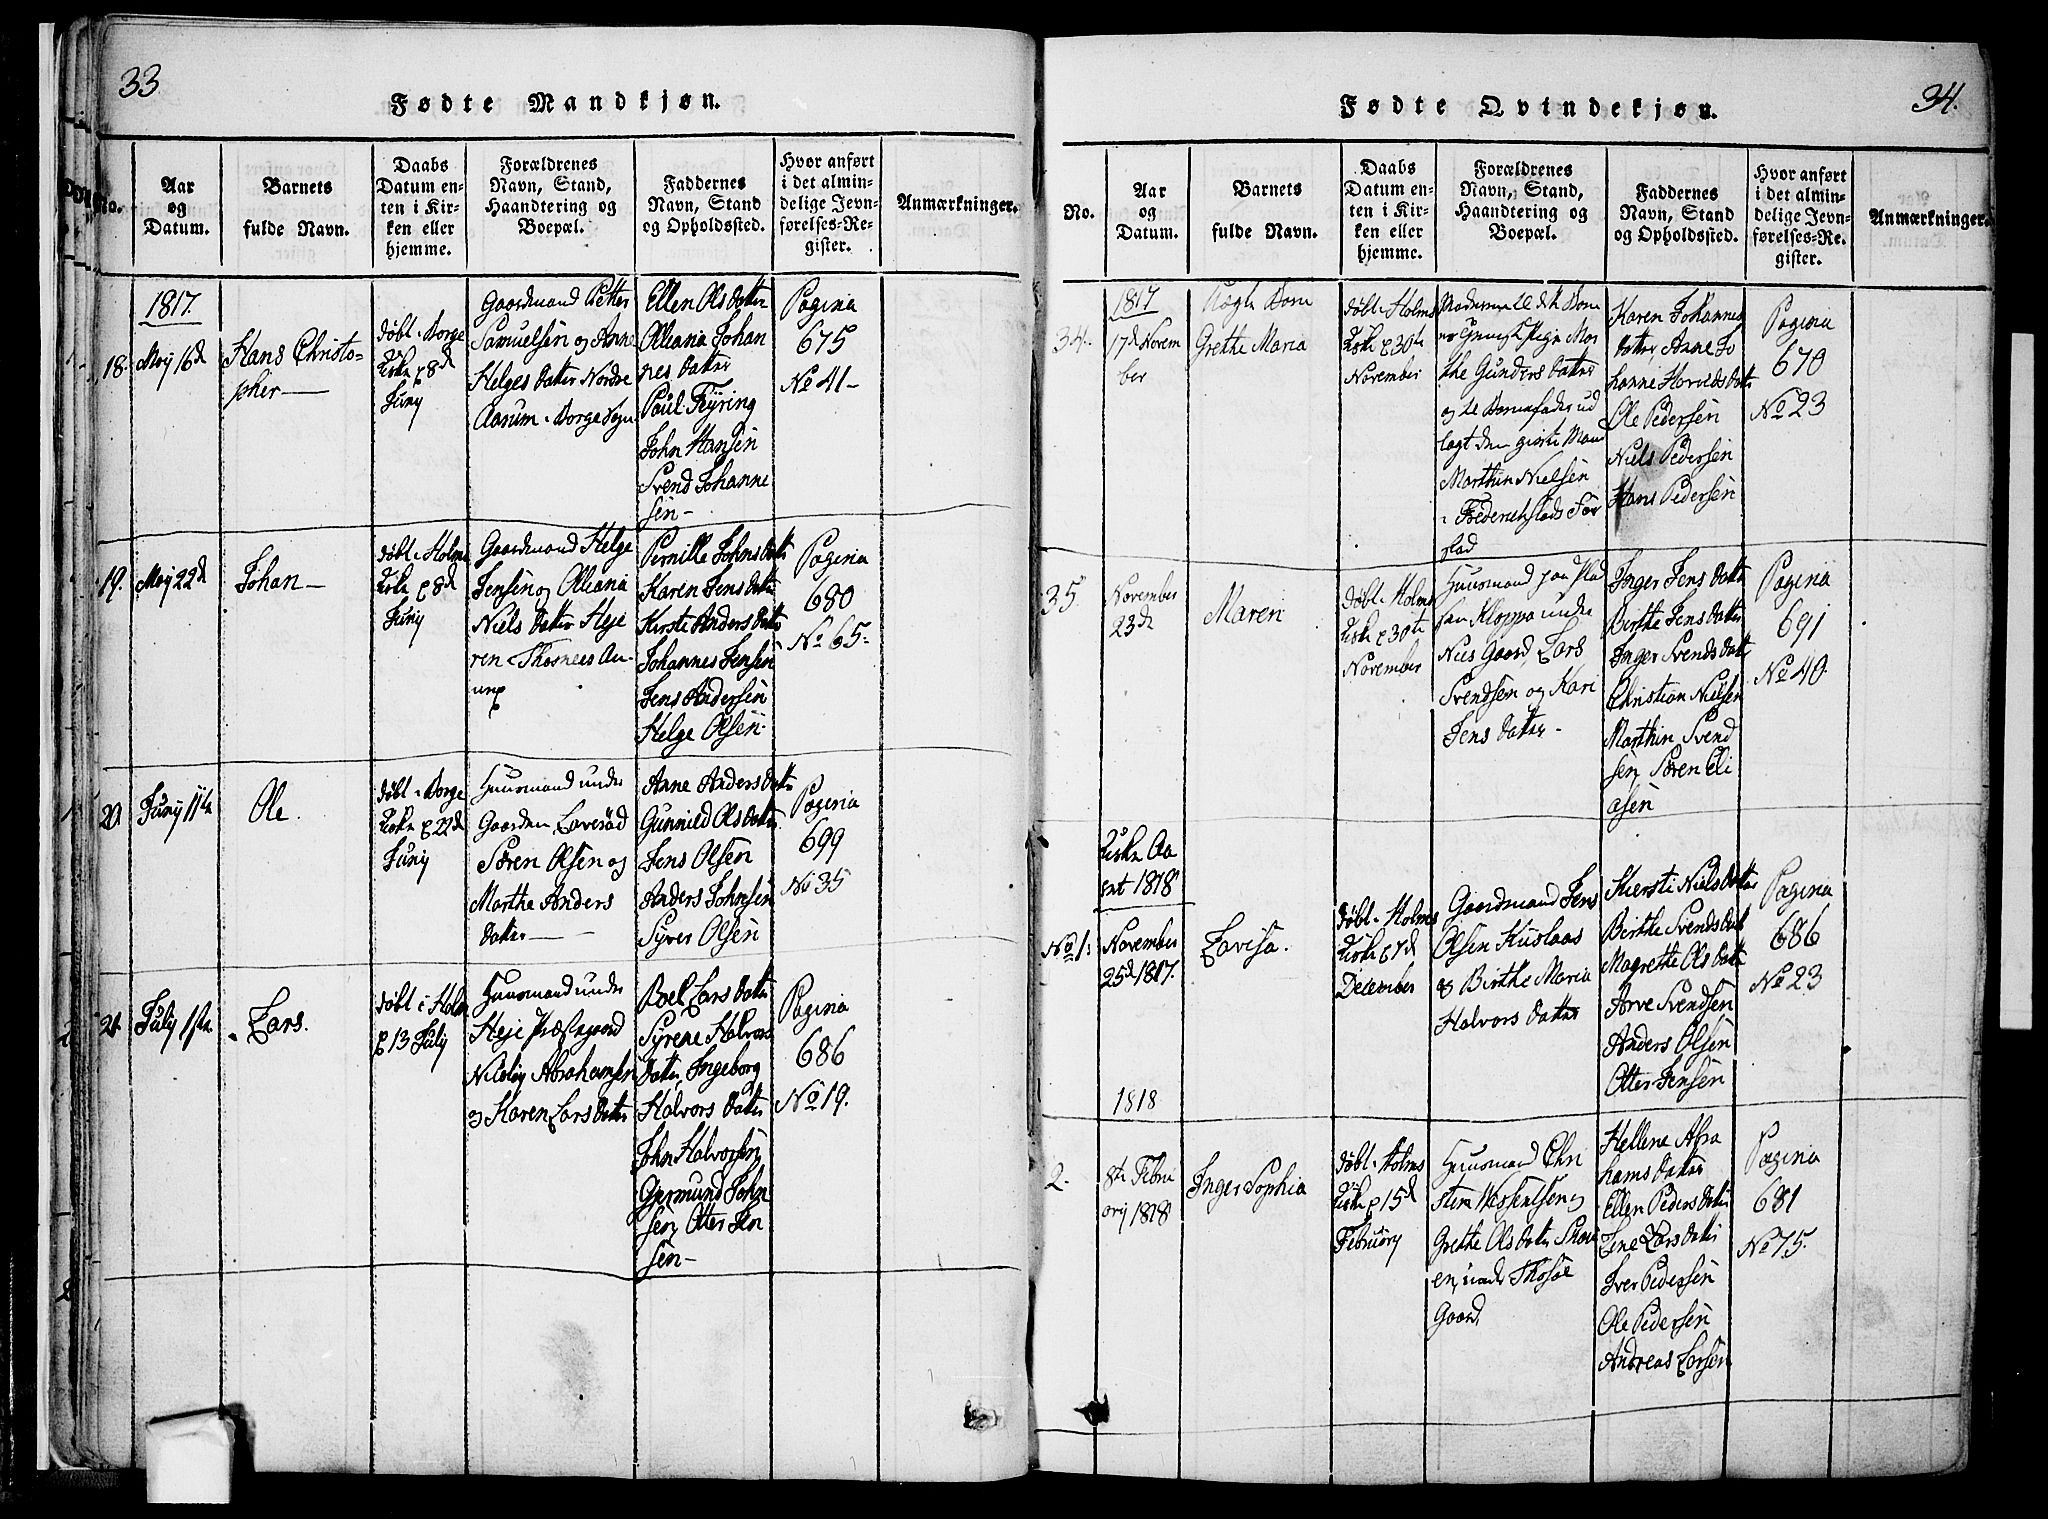 33
Fødte Mandkjøn.
No.
Aar
og
Datum.
Barnets
fulde Navn.
Daabs
Datum en-
ten i Kir-
ken eller
hjemme.
Forældrenes
Navn, Stand,
Haandtering og
Boepæl.
Faddernes
Navn, Stand
og Opholdssted.
Hvor anført
i det almin-
delige Jevn-
førelses-Re-
gister.
Anmærkninger.
1817.
18.
Maj 16d
Hans Christo-
pher
døbt i Borge
Kirke p 8d
Junij
Gaardmand Petter
Samuelsen og Anne
Helges datter Nordre
Aarum i Borge Sogn
Ellen Ols datter
Olleana Johan
nes datter
Paul Feyring
John Hansen
Svend Johanne
sen
Pagina
675
No 41
19.
Maj 22d
Johan
døbt i Holms
Kirke p 8d
Junij
Gaardmand Helge
Jensen og Olleana
Niels datter Heje
ren i Thosnees An-
nex
Pernille Johns datter
Karen Jens datter
Kirste Anders datter
Johannes Jensen
Jens Andersen
Helge Olsen
Pagina
680
No 65
20.
Junij 11te
Ole.
døbt i Borge
Kirke p 22d
Junij
Huusmand under
Gaarden Lavesød
Søren Olsen og
Marthe Anders
datter
Anne Anders datter
Gunnild Ols datter
Jens Olsen
Anders Johnsen
Syver Olsen
Pagina
699
No 35
21.
Julij 1ste
Lars.
døbt i Holm
p 13 Julij
Huusmand under
Heje Præstegaard
Nicolay Abrahamsen
og Karen Lars datter
Boel Lars datter
Syrene Halvors
datter, Ingeborg
Halvors datter
John Halvorsen
Germund John
sen, Otter Jen
sen
Pagina
686
No 19.
34.
Fødte Qvindekjøn.
No.
Aar
og
Datum.
Barnets
fulde Navn.
Daabs
Datum en-
ten i Kir-
ken eller
hjemme.
Forældrenes
Navn, Stand,
Haandtering og
Boepæl.
Faddernes
Navn, Stand
og Opholdssted.
Hvor anført
i det almin-
delige Jevn-
førelses-Re-
gister.
Anmærkninger.
1817
34.
17d Novem
ber
Uægte Barn
Grethe Maria
døbt i Holms
Kirke p 30te
November
Moderen til dette Barn
er Pige Mar
the Gunders datter
og til Barnefader ud
lagt den gifte Mand
Marthin Nielsen
i Frederichstads For
stad
Karen Johannes
datter Anne Jo
hanne Horveds datter
Ole Pedersen
Niels Pedersen
Hans Pedersen
Pagina
670
No 23
35.
November
23d
Maren
døbt i Holms
Kirke p 30te
November
Huusmand paa Plad
sen Kloppa under
Nies Gaard, Lars
Svendsen og Kari
Jens datter
Inger Jens datter
Birthe Jens datter
Inger Svends datter
Christian Nielsen
Marthin Svend
sen, Søren Eli
asen
Pagina
691
No 40.
Kirke Aa
ret 1818
No 1.
November
25d 1817.
Lovisa.
døbt i Holms
Kirke p 7d
December
Gaardmand Jens
Olsen Huslaas
& Birthe Maria
Halvors datter
Kiersti Niels datter
Birthe Svends datter
Magrethe Ols datter
Arve Svendsen
Anders Olsen
Otter Jensen
Pagina
686
No 23
1818
2.
8te Febru
arij 1818
Inger Sophia
døbt i Holms
Kirke p 15d
Februarij
Huusmand Chri
stern Wessentsen og
Grethe Ols datter
en under Thosøe
Gaard.
Hellene Abra
hams datter
Ellen Peders datter
Jene Lars datter
Iver Pedersen
Ole Pedersen
Andreas Larsen
Pagina
681
No 75.